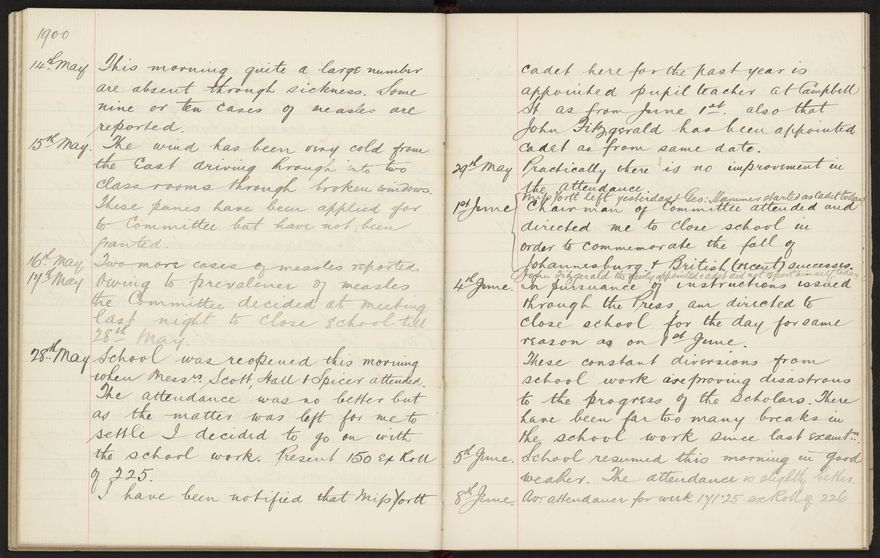 1900
14th May This morning quite a large number
are absent through sickness. Some
nine or ten cases of measles are
reported.
15th May. The wind has been very cold from
the East driving through into two
classrooms through broken windows.
These panes have been applied for
to Committee but have not been
granted.
16th May Two more cases of measles reported.
17th May Owing to prevalence of measles
the Committee decided at meeting
last night to close school till
28th May.
28th May School was reopened this morning
when Messrs. Scott, Hall & Spicer attended.
The attendance was no better but
as the matter was left for me to
settle I decided to go on with
the school work. Present 150 ex Roll
of 225.
I have been notified that Miss Yortt
cadet here for the past year is
appointed pupil teacher at Campbell
St. as from June 1st. also that
John Fitzgerald has been appointed
Cadet as from same date.
29th May Practically there is no improvement in
the attendance
Miss Yortt left yesterday & Geo. Hammer started as cadet today
1st June Chairman of Committee attended and
directed me to close school in
order to commemorate the fall of
Johannesburg & British (recent) successes.
John Fitzgerald the newly appointed cadet did not report himself today
4th June In pursuance of instructions issued
through the Press, am directed to
close school for the day for same
reason as on 1st June.
These constant diversions from
school work are proving disastrous
to the progress of the scholars. There
have been far too many breaks in
the school work since last examtn.
5th June. School resumed this morning in good
weather. The attendance is slightly better.
8th June. Av. attendance for week 171.25 ex Roll of 226